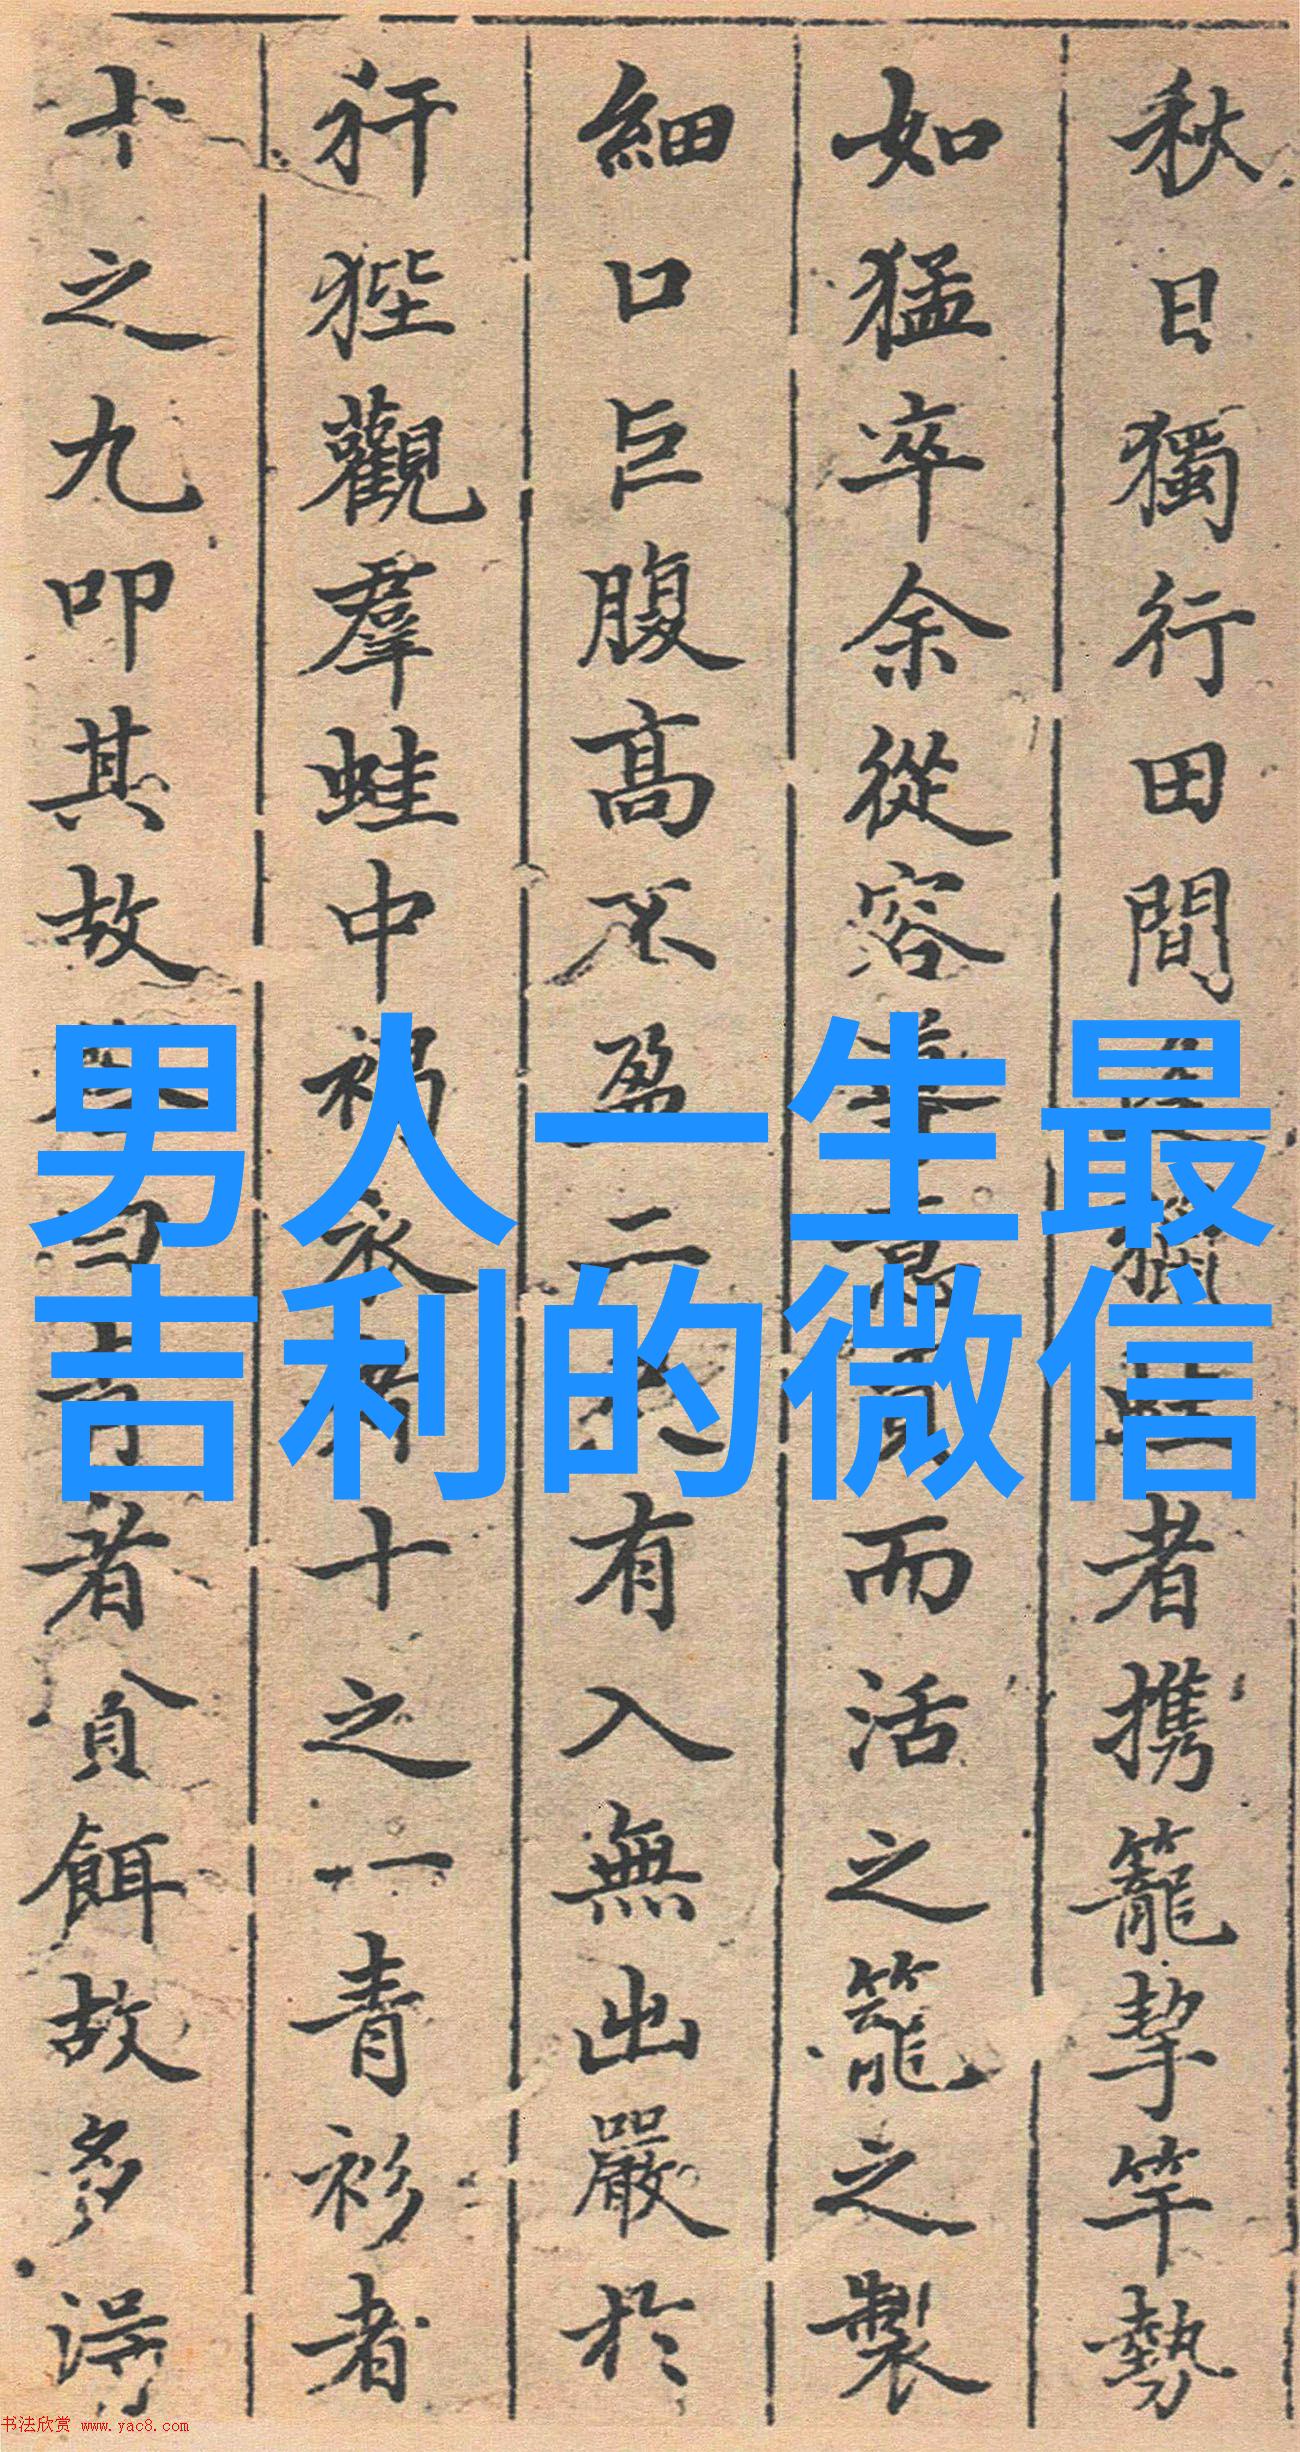 秋日獨行田間者携籠挈竿勢
如猛卒余從容而活之籠之製
細口巨腹高不盈二有入無出嚴於
犴狴觀羣蛙中褐衣者十之一青衫者
十之九叩其故曰青者貪餌故多得
男人一生最
吉利的微信
书法欣赏 www.yac8.com